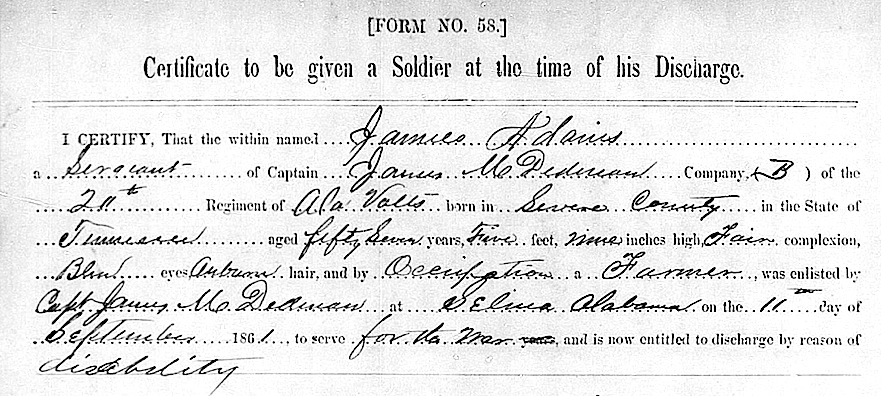 [FORM NO. 58.]
Certificate to be given a Soldier at the time of his Discharge.
I CERTIFY, That the within named James Adams
a Sergeant of Captain James M Dedman Company, (B) of the
20th Regiment of Ala Volts born in Severe County in the State of
Tennessee aged fifty Seven years, Five feet, nine inches high, Fair complexion,
Blue eyes, Auburn hair, and by Occupation a Farmer, was enlisted by
Capt James M Dedman at Selma Alabama on the 11th day of
September 1861, to serve for the war, and is now entitled to discharge by reason of
disability